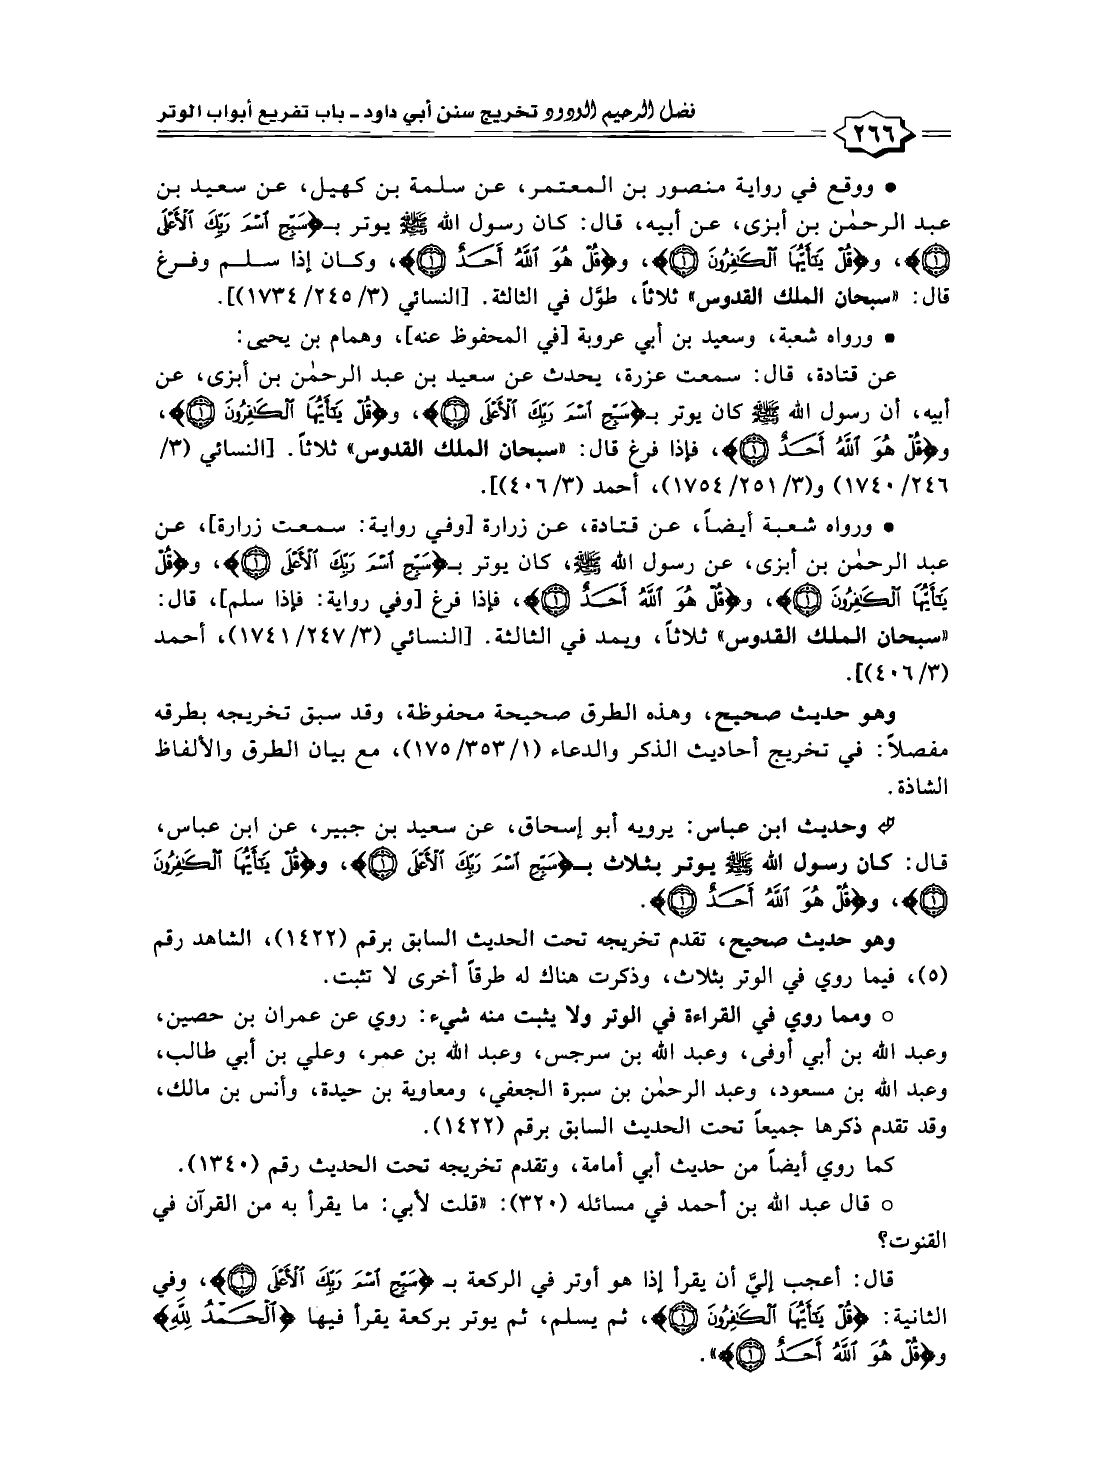 فضل الرحيم الودود تخريج سنن أبي داود ـ باب تفريع أبواب الوتر
٢٦٦
• ووقع في رواية منصور بن المعتمر، عن سلمة بن كهيل، عن سعيد بن
عبد الرحمٰن بن أبزى، عن أبيه، قال: كان رسول الله ﷺ يوتر بـ﴿سَبِّحِ ٱسْمَ رَبِّكَ ٱلْأَعْلَى
۝١﴾، و﴿قُلْ يَٰٓأَيُّهَا ٱلْكَٰفِرُونَ ۝١﴾، و﴿قُلْ هُوَ ٱللَّهُ أَحَدٌ ۝١﴾، وكان إذا سلم وفرغ
قال: «سبحان الملك القدوس» ثلاثاً، طوَّل في الثالثة. [النسائي (٣/ ٢٤٥/ ١٧٣٤)].
• ورواه شعبة، وسعيد بن أبي عروبة [في المحفوظ عنه]، وهمام بن يحيى:
عن قتادة، قال: سمعت عزرة، يحدث عن سعيد بن عبد الرحمٰن بن أبزى، عن
أبيه، أن رسول الله ﷺ كان يوتر بـ﴿سَبِّحِ ٱسْمَ رَبِّكَ ٱلْأَعْلَى ۝١﴾، و﴿قُلْ يَٰٓأَيُّهَا ٱلْكَٰفِرُونَ ۝١﴾،
و﴿قُلْ هُوَ ٱللَّهُ أَحَدٌ ۝١﴾، فإذا فرغ قال: «سبحان الملك القدوس» ثلاثاً. [النسائي (٣/
٢٤٦/ ١٧٤٠) و(٣/ ٢٥١/ ١٧٥٤)، أحمد (٣/ ٤٠٦)].
• ورواه شعبة أيضاً، عن قتادة، عن زرارة [وفي رواية: سمعت زرارة]، عن
عبد الرحمٰن بن أبزى، عن رسول الله ﷺ، كان يوتر بـ﴿سَبِّحِ ٱسْمَ رَبِّكَ ٱلْأَعْلَى ۝١﴾، و﴿قُلْ
يَٰٓأَيُّهَا ٱلْكَٰفِرُونَ ۝١﴾، و﴿قُلْ هُوَ ٱللَّهُ أَحَدٌ ۝١﴾، فإذا فرغ [وفي رواية: فإذا سلم]، قال:
«سبحان الملك القدوس» ثلاثاً، ويمد في الثالثة. [النسائي (٣/ ٢٤٧/ ١٧٤١)، أحمد
(٣/ ٤٠٦)].
وهو حديث صحيح، وهذه الطرق صحيحة محفوظة، وقد سبق تخريجه بطرقه
مفصلاً: في تخريج أحاديث الذكر والدعاء (١/ ٣٥٣/ ١٧٥)، مع بيان الطرق والألفاظ
الشاذة.
وحديث ابن عباس: يرويه أبو إسحاق، عن سعيد بن جبير، عن ابن عباس،
قال: كان رسول الله ﷺ يوتر بثلاث بـ﴿سَبِّحِ ٱسْمَ رَبِّكَ ٱلْأَعْلَى ۝١﴾، و﴿قُلْ يَٰٓأَيُّهَا ٱلْكَٰفِرُونَ
۝١﴾، و﴿قُلْ هُوَ ٱللَّهُ أَحَدٌ ۝١﴾.
وهو حديث صحيح، تقدم تخريجه تحت الحديث السابق برقم (١٤٢٢)، الشاهد رقم
(٥)، فيما روي في الوتر بثلاث، وذكرت هناك له طرقاً أخرى لا تثبت.
○ ومما روي في القراءة في الوتر ولا يثبت منه شيء: روي عن عمران بن حصين،
وعبد الله بن أبي أوفى، وعبد الله بن سرجس، وعبد الله بن عمر، وعلي بن أبي طالب،
وعبد الله بن مسعود، وعبد الرحمٰن بن سبرة الجعفي، ومعاوية بن حيدة، وأنس بن مالك،
وقد تقدم ذكرها جميعاً تحت الحديث السابق برقم (١٤٢٢).
كما روي أيضاً من حديث أبي أمامة، وتقدم تخريجه تحت الحديث رقم (١٣٤٠).
○ قال عبد الله بن أحمد في مسائله (٣٢٠): «قلت لأبي: ما يقرأ به من القرآن في
القنوت؟
قال: أعجب إليَّ أن يقرأ إذا هو أوتر في الركعة بـ ﴿سَبِّحِ ٱسْمَ رَبِّكَ ٱلْأَعْلَى ۝١﴾، وفي
الثانية: ﴿قُلْ يَٰٓأَيُّهَا ٱلْكَٰفِرُونَ ۝١﴾، ثم يسلم، ثم يوتر بركعة يقرأ فيها ﴿ٱلْحَمْدُ لِلَّهِ﴾
و﴿قُلْ هُوَ ٱللَّهُ أَحَدٌ ۝١﴾».